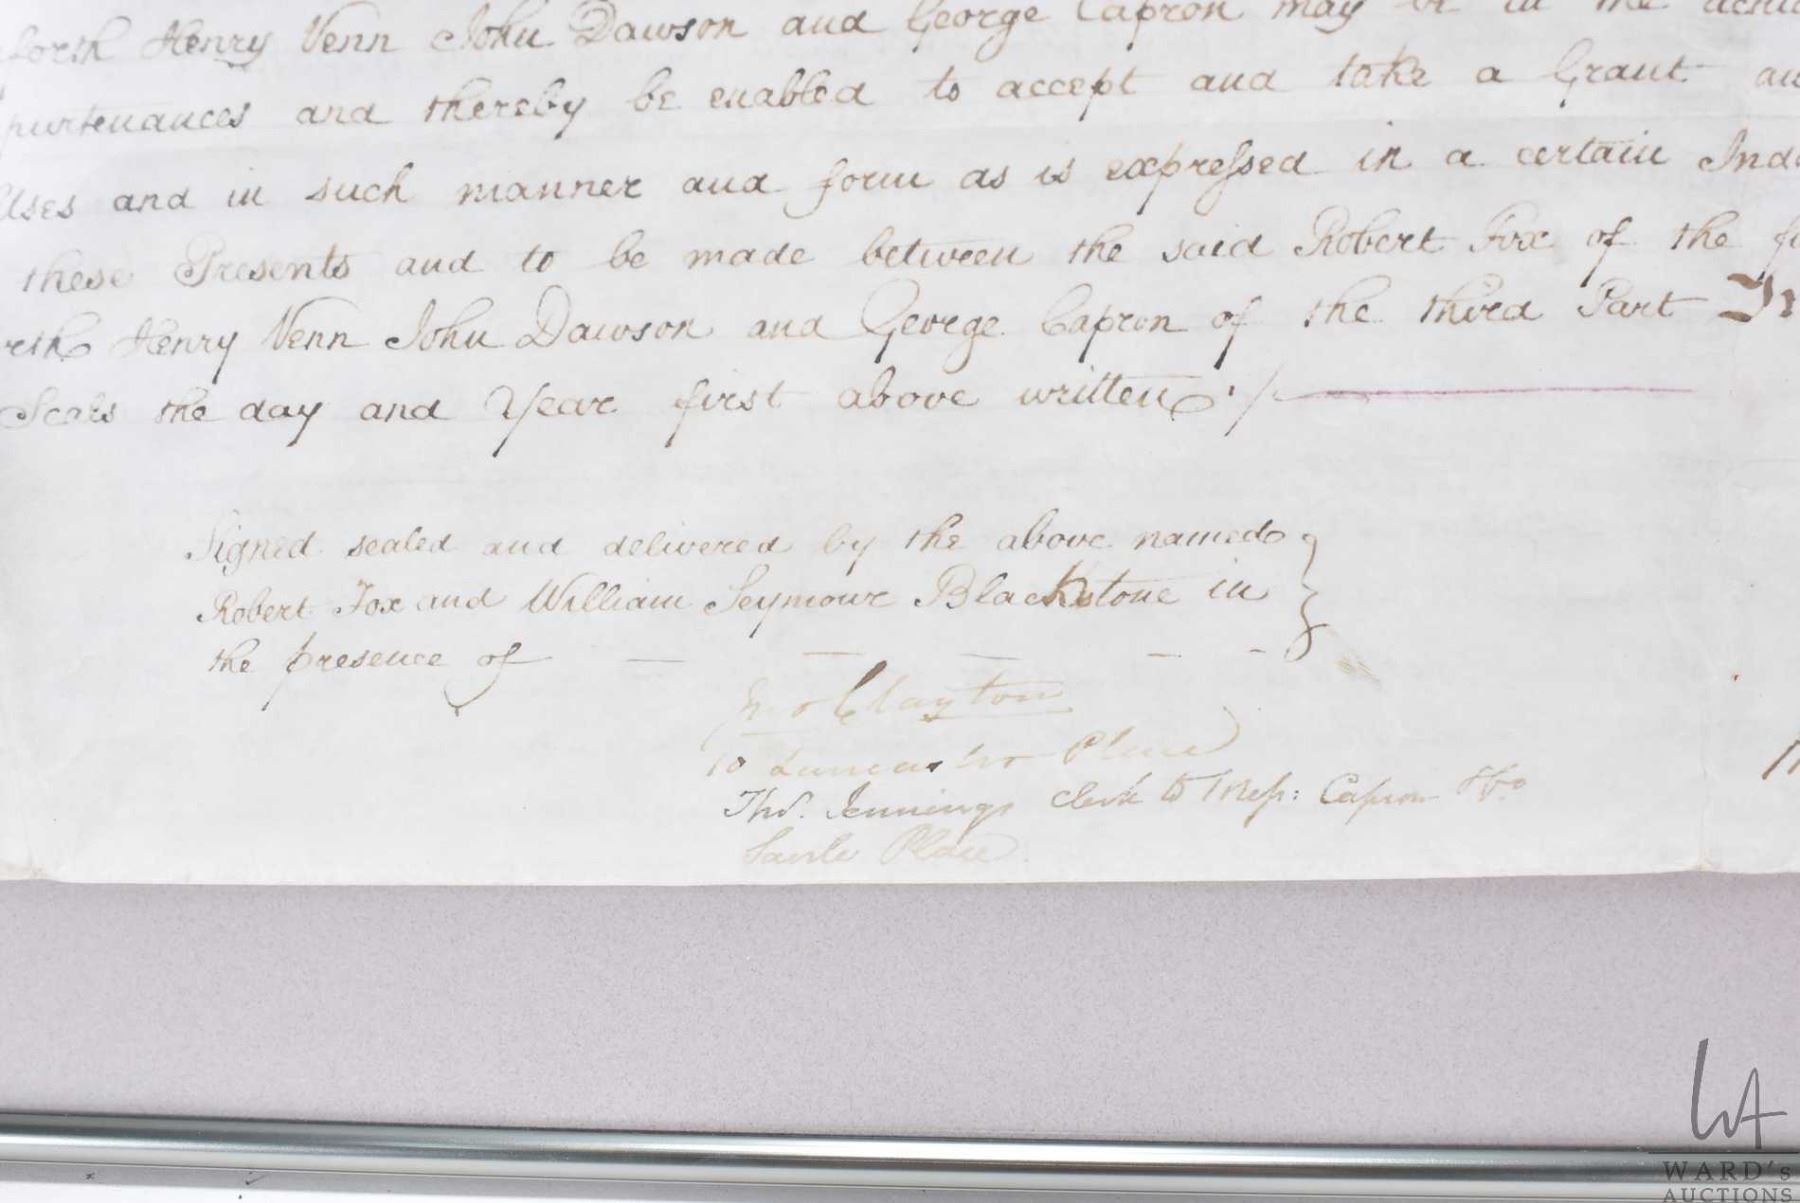 forth Henry Venn John Dawson and George Capron may be in the
purtenances and thereby be enabled to accept and take a Grant
Uses and in such manner and form as is expreſsed in a certain
these Presents and to be made between the said Robert Fox of the
Henry Venn John Dawson and George Capron of the third Part
Seals the day and Year first above written
Signed sealed and delivered by the above named
Robert Fox and William Seymour Blackstone in
the presence of
Clayton
10 Lancaster Place
Thos. Jennings Clerk to Meſs: Capron & Co
Savile Place
WARD's
AUCTIONS